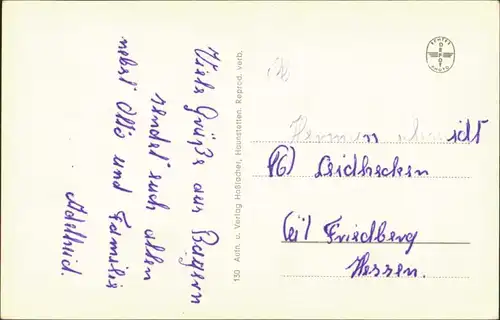 Viele Grüße aus Bayern
sendet euch allen
nebst Otto und Familie
Adelheid.
130 Aufn. u. Verlag Haßlacher, Haunstetten. Reprod. verb.
ECHTES
DEPOT
PHOTO
(16) Leidhecken
(üb/ Friedberg
Hessen.